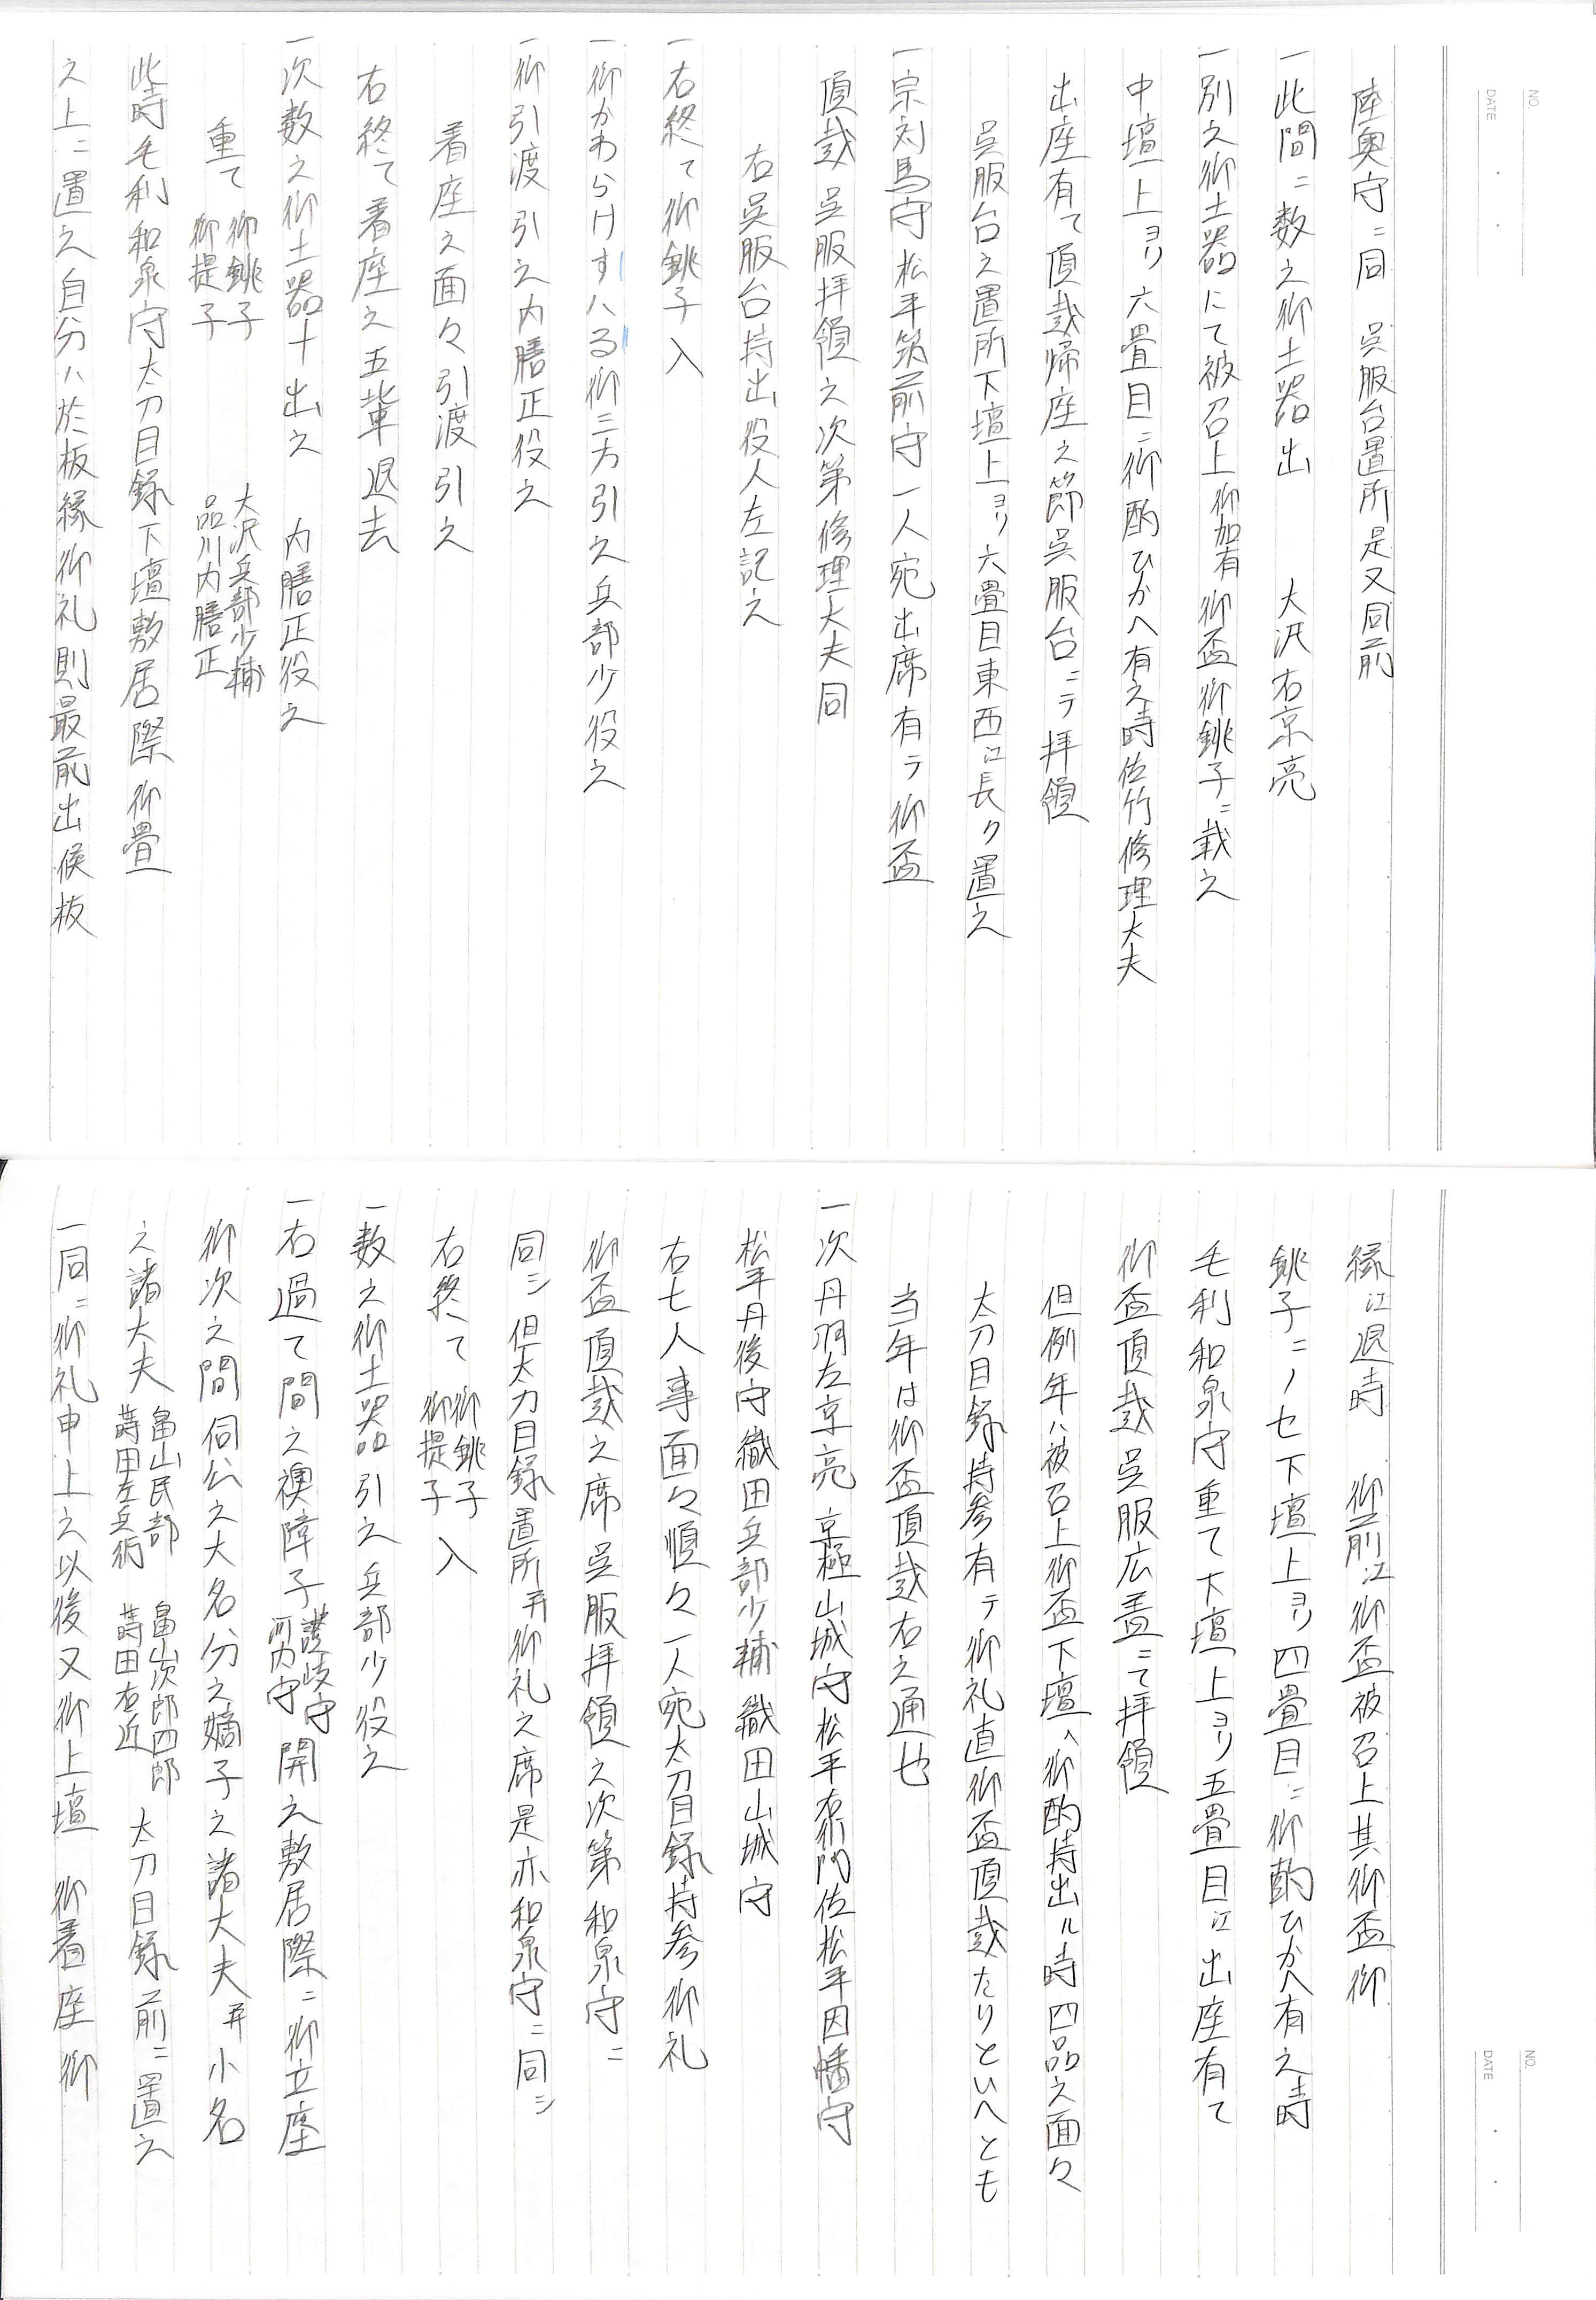 NO.
DATE
陸奥守ニ同　呉服台置所是又同前
一此間ニ数之御土器出　大沢右京亮
一別之御土器にて被召上御加有御盃御銚子ニ載之
中壇上ヨリ六畳目ニ御酌ひかへ有之時佐竹修理大夫
出座有て頂戴帰座之節呉服台ニテ拝領
呉服台之置所下壇上ヨリ六畳目東西江長ク置之
一宗対馬守松平筑前守一人宛出席有テ御盃
頂戴呉服拝領之次第修理大夫同
右呉服台持出役人左記之
一右終て御銚子入
一御かわらけすハる御三方引之兵部少役之
一御引渡引之内膳正役之
着座之面々引渡引之
右終て着座之五輩退去
一次数之御土器十出之　内膳正役之
重て　御銚子　大沢兵部少輔
御提子　品川内膳正
此時毛利和泉守太刀目録下壇敷居際御畳
之上ニ置之自分ハ於板縁御礼則最前出候板
NO.
DATE
縁江退時　御前江御盃被召上其御盃御
銚子ニノセ下壇上ヨリ四畳目ニ御酌ひかへ有之時
毛利和泉守重て下壇上ヨリ五畳目江出座有て
御盃頂戴呉服広蓋ニて拝領
但例年ハ被召上御盃下壇へ御酌持出ル時四品之面々
太刀目録持参有テ御礼直御盃頂戴たりといへとも
当年は御盃頂戴右之通也
一次丹羽左京亮京極山城守松平右衛門佐松平因幡守
松平丹後守織田兵部少輔織田山城守
右七人事面々順々一人宛太刀目録持参御礼
御盃頂戴之席呉服拝領之次第和泉守ニ
同シ但太刀目録置所并御礼之席是亦和泉守ニ同シ
右終て　御銚子　入
御提子
一数之御土器引之兵部少役之
一右過て間之襖障子讃岐守河内守開之敷居際ニ御立座
御次之間伺公之大名分之嫡子之諸大夫并小名
之諸大夫　畠山民部　畠山次郎四郎　太刀目録前ニ置之
蒔田左兵衛　蒔田右近
一同ニ御礼申上之以後又御上壇　御着座御